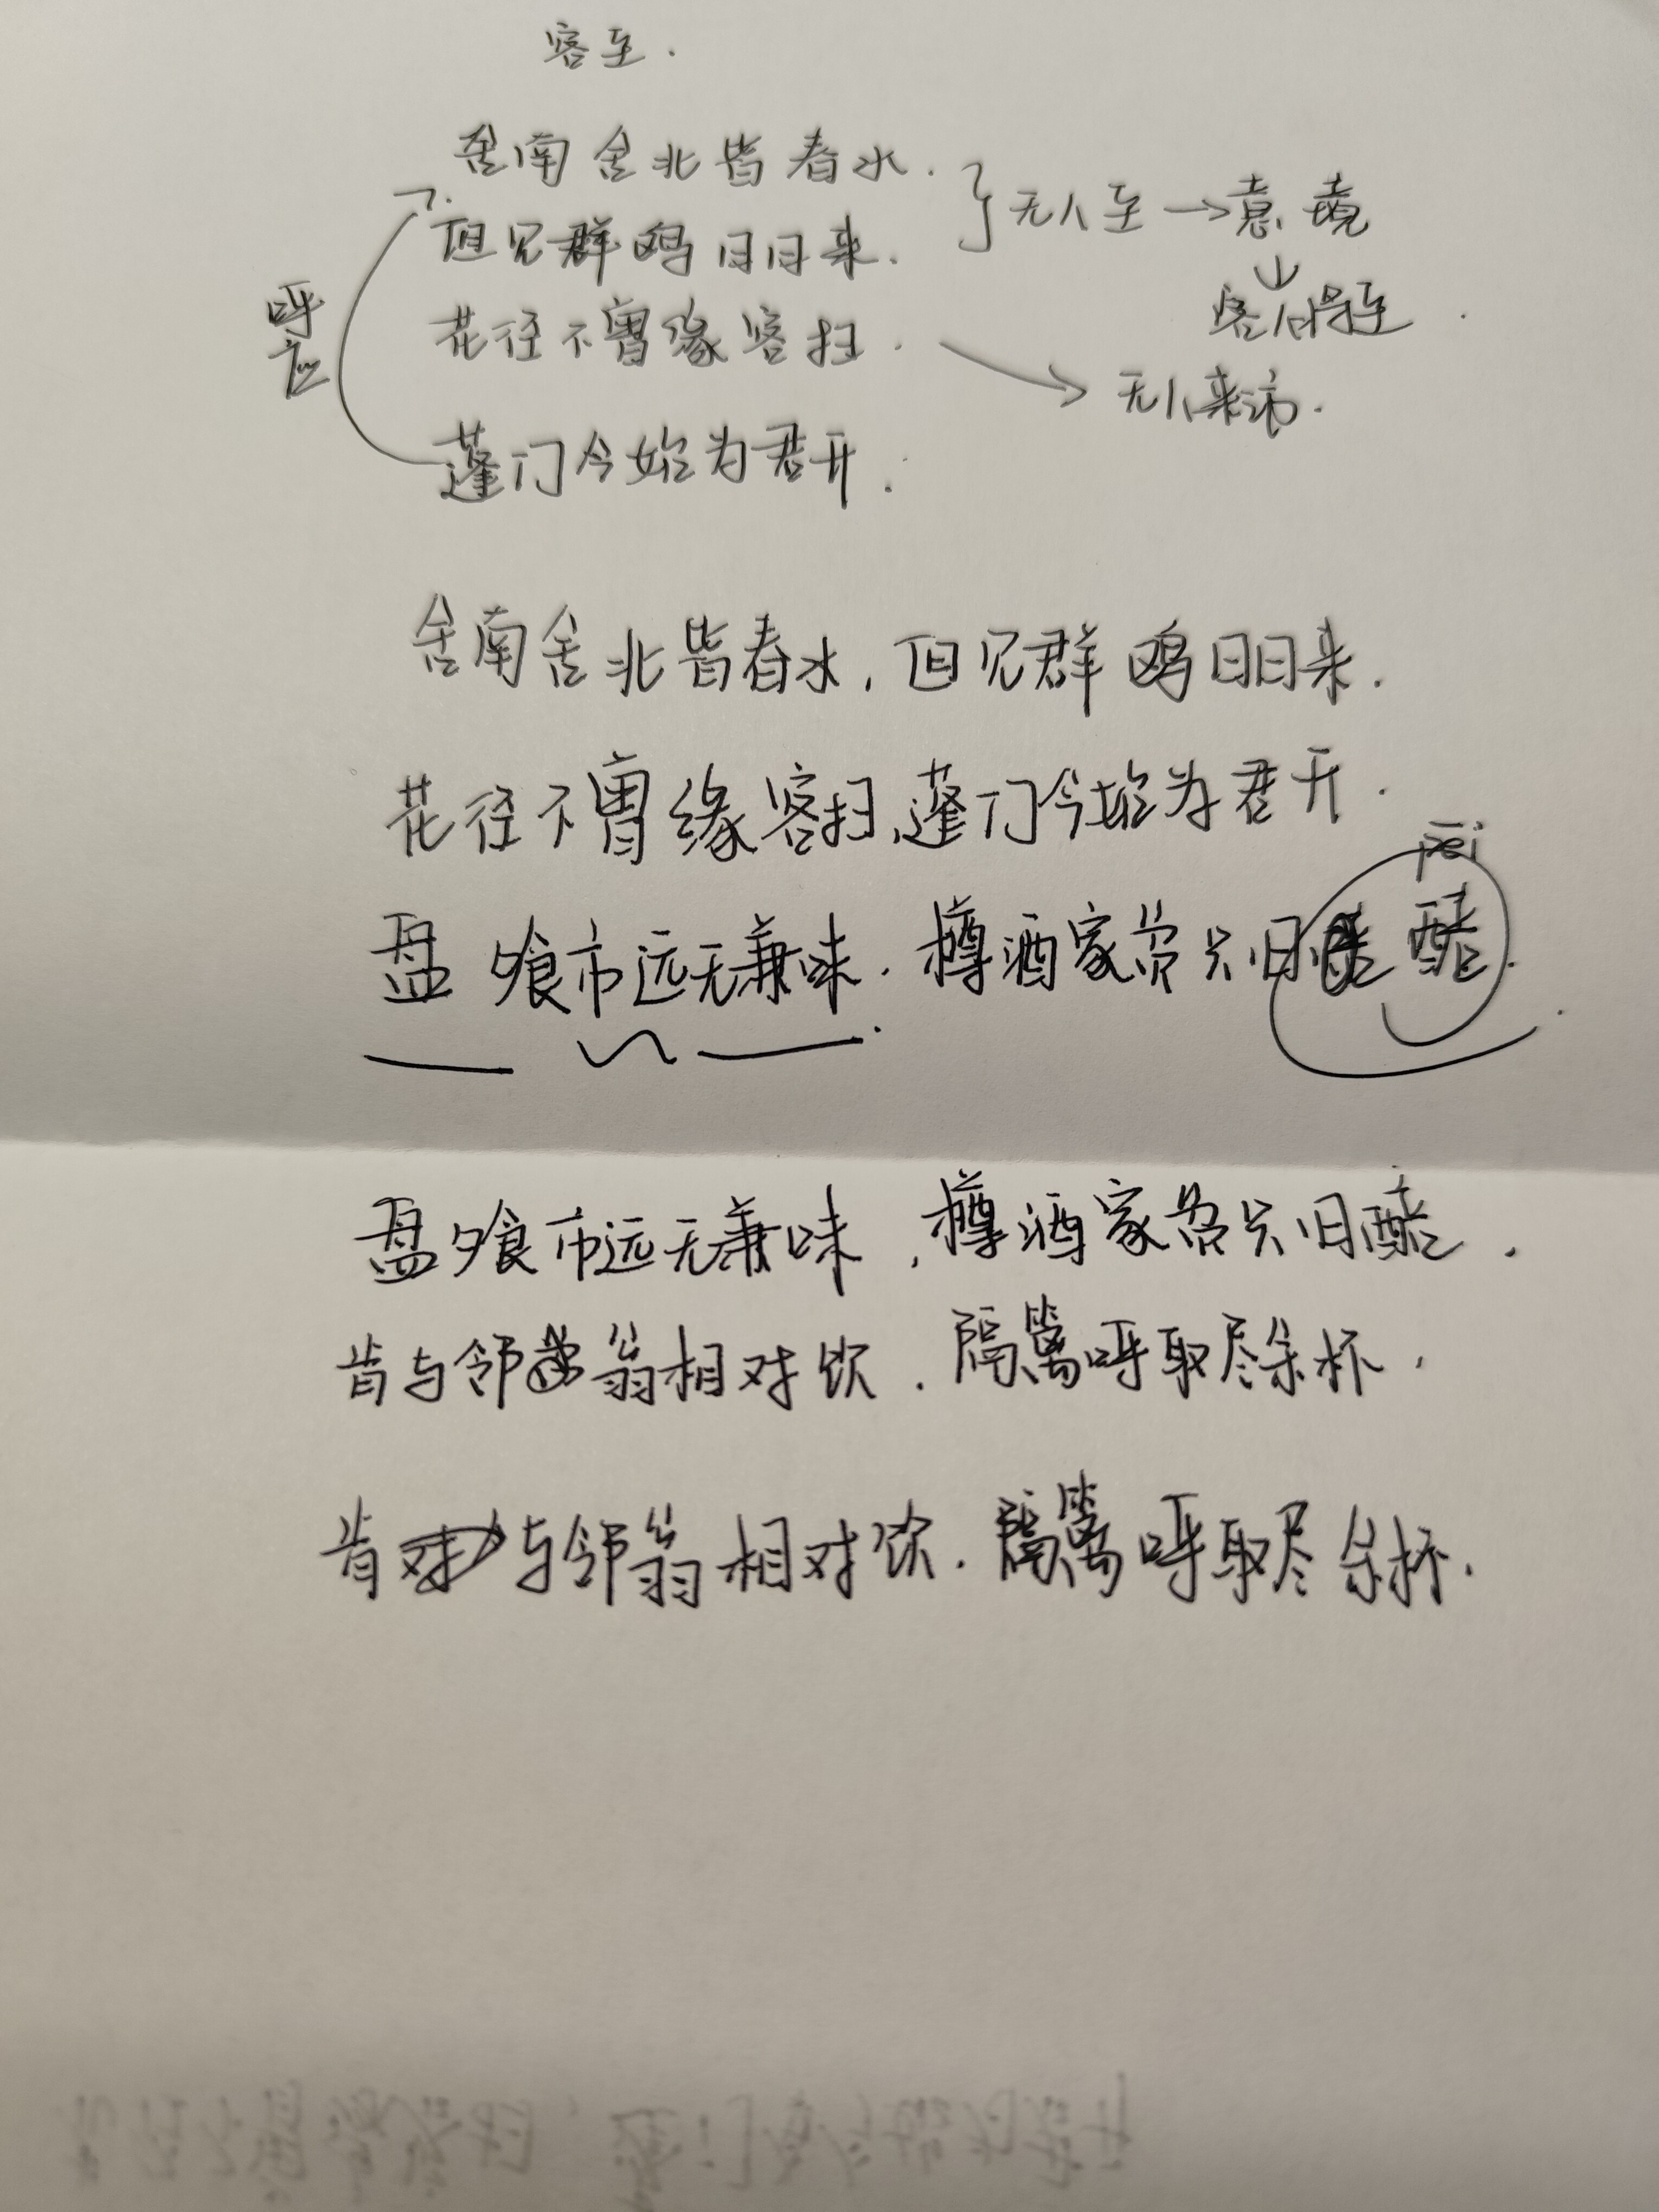 客至.
舍南舍北皆春水.
但见群鸥日日来.
无人至→意境
花径不曾缘客扫.
无人来访.
呼应
蓬门今始为君开.
舍南舍北皆春水,但见群鸥日日来.
花径不曾缘客扫,蓬门今始为君开.
pei
盘飧市远无兼味.樽酒家贫只旧醅.
盘飧市远无兼味,樽酒家贫只旧醅.
肯与邻翁相对饮.隔篱呼取尽余杯.
肯与邻翁相对饮.隔篱呼取尽余杯.